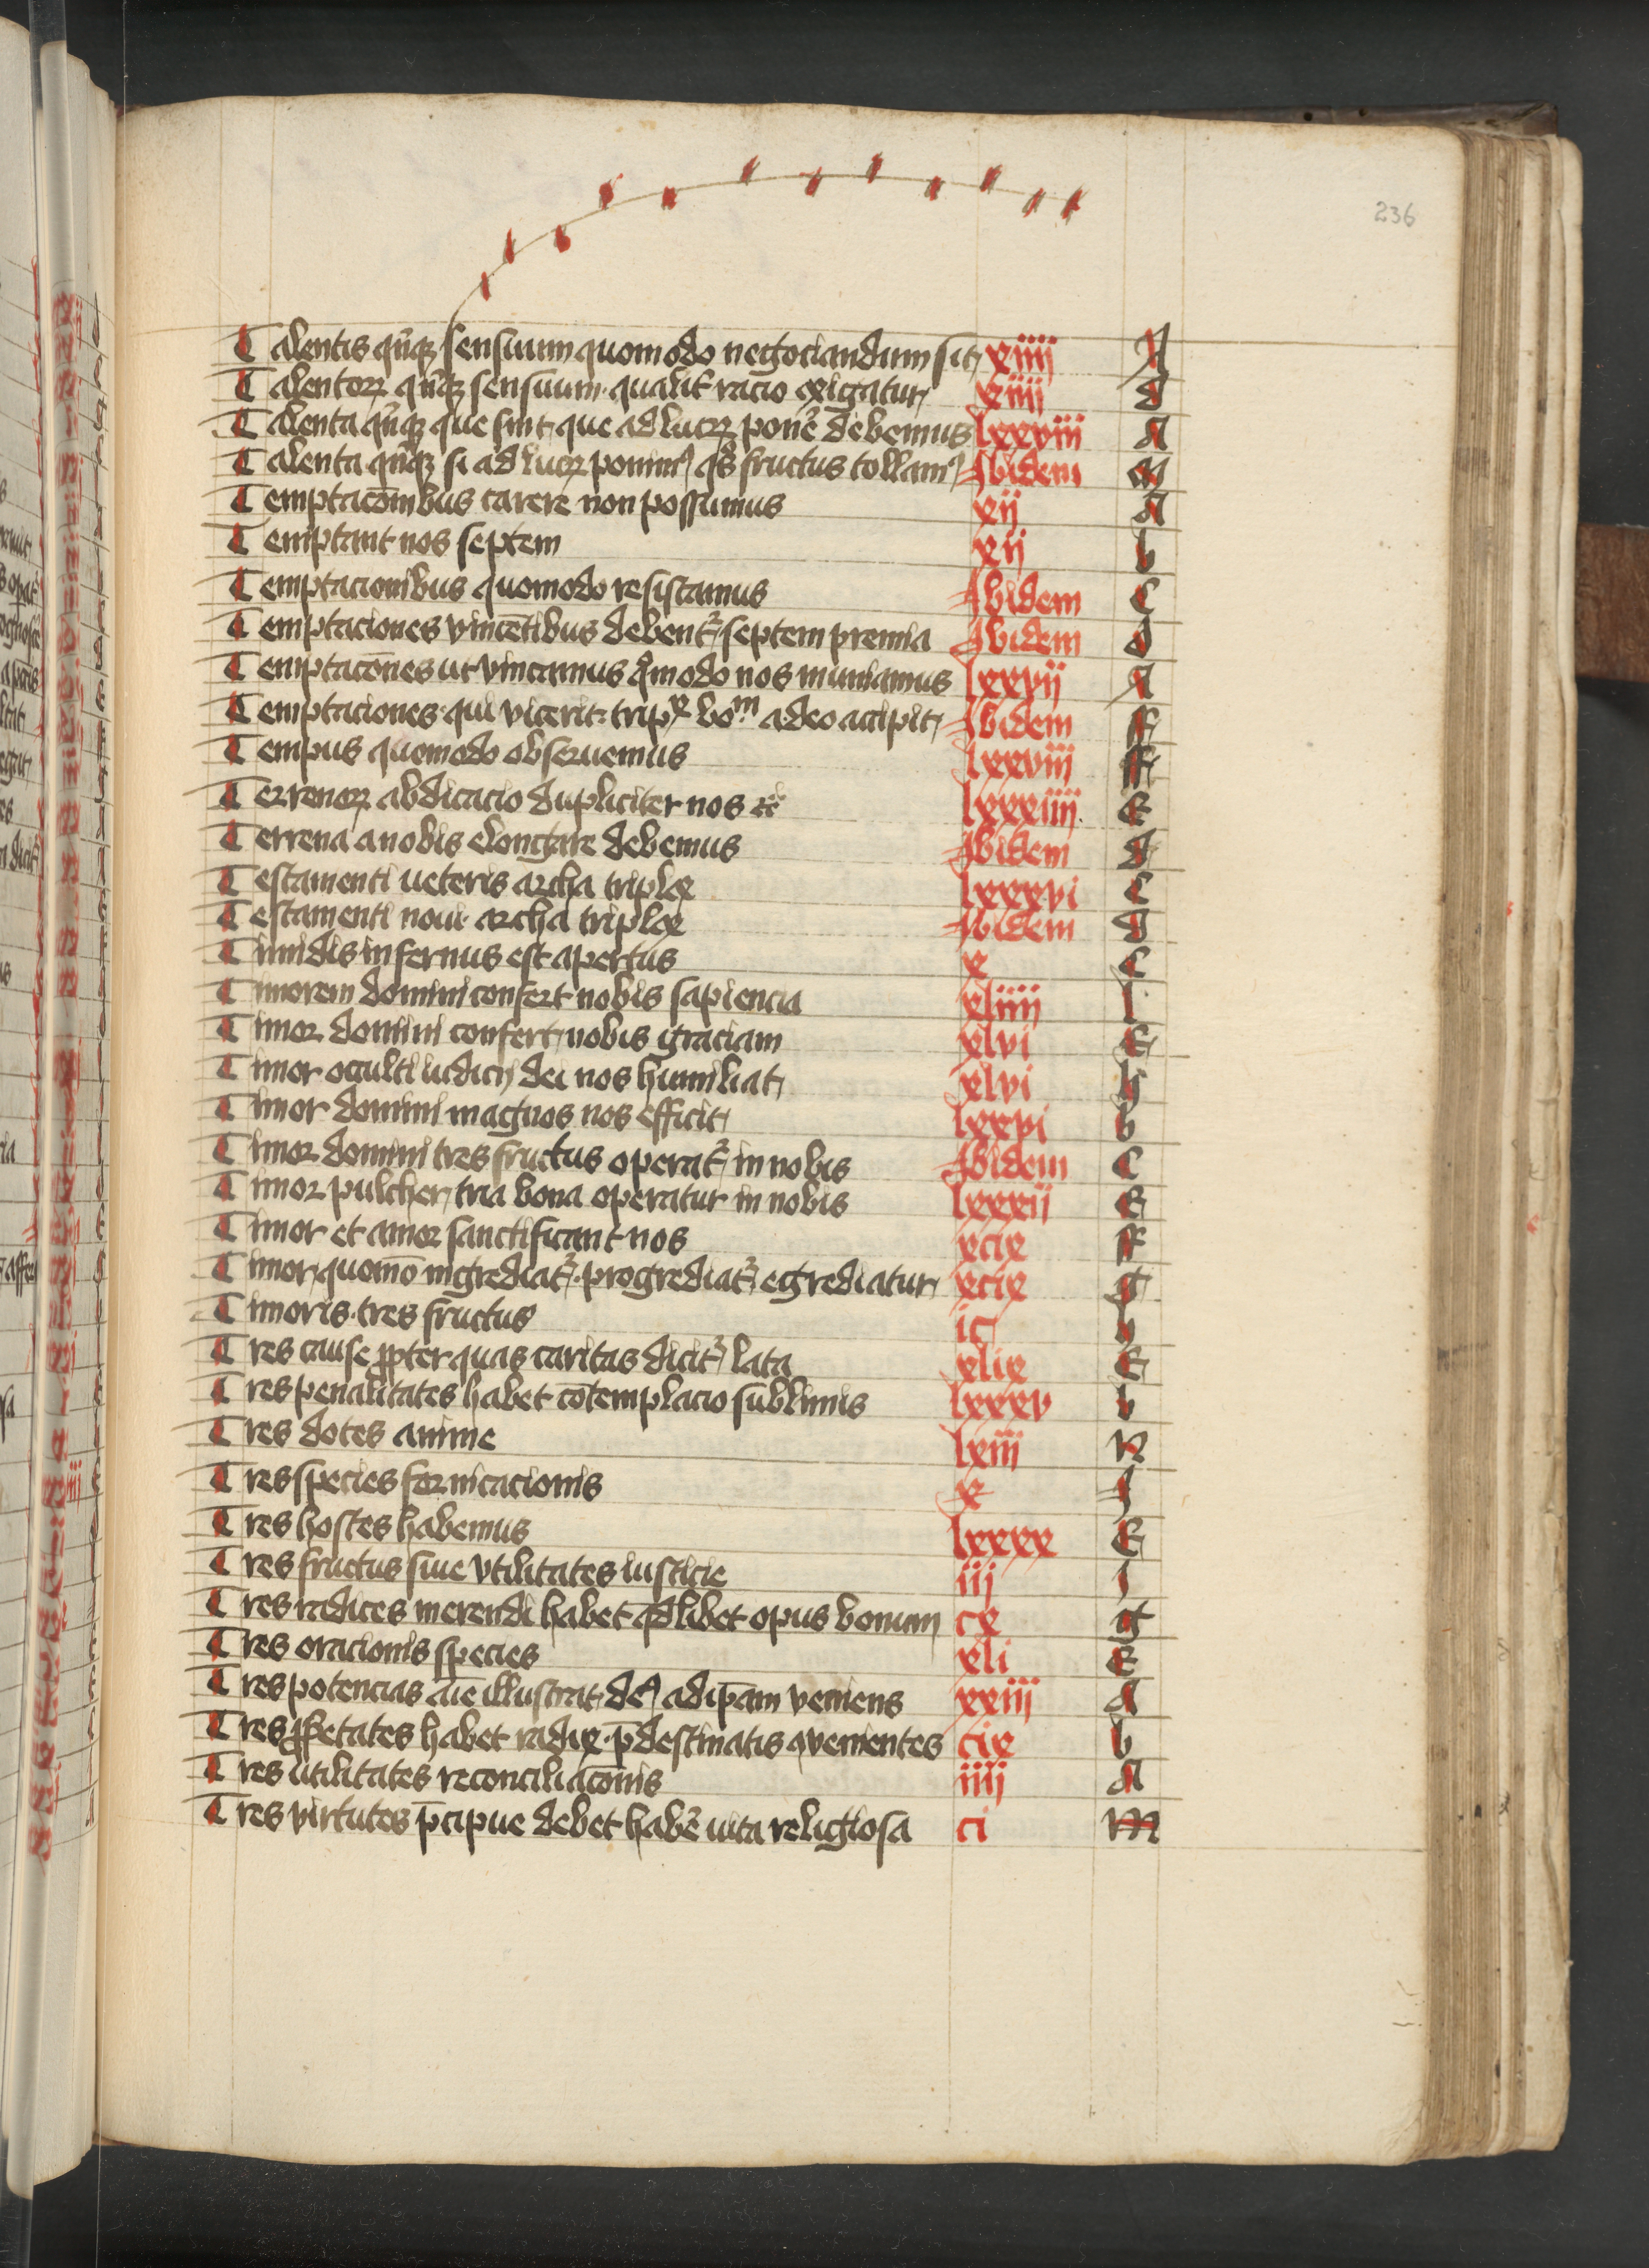 236
Talentis qn̄qꝫ sensuum quomodo negociandum sit xiiij A
Talentoꝝ qn̄qꝫ sensuum qualit̄ racio exigatur xiiij d
Talenta qn̄qꝫ que sint que ad lucꝝ pone᷒ debemus lxxviij A
Talenta qn̄qꝫ si ad lucꝝ ponimꝰ qͦs fructus tollamꝰ Ibidem M
Temptacōnibus carere non possumus xij A
Temptant nos septem xij b
Temptacionibus quomodo resistamus Ibidem C
Temptaciones vincētibus debent᷑ septem premia Ibidem d
Temptacōnes ut vincamus qͦmodo nos muniamus lxxvij A
Temptaciones qui vicerit tripˣ boᵐ a deo accipit Ibidem ff
Tempus quomodo obseruemus lxxviij ff
Terrenoꝝ abdicacio dupliciter nos lxxxiiij E
Terrena a nobis elongare debemus Ibidem d
Testamenti ueteris archa triplex lxxxvi C
Testamenti noui archa triplex Ibidem d
Timidis infernus est apertus x C
Timorem domini confert nobis sapiencia xliiij I
Timor domini confert nobis graciam xlvi E
Timor occulti iudicij dei nos humiliat xlvi h
Timor domini magnos nos efficit lxxvi b
Timor domini tres fructus operat᷑ in nobis Ibidem C
Timor pulcher tria bona operatur in nobis lxxxij E
Timor et amor sanctificant nos xcix ff
Timor quomō ingrediat᷑ progrediat᷑ egrediatur xcix g
Timoris tres fructus ic
Tres cause ꝓpter quas caritas dicit᷑ lata xlix E
Tres penalitates habet cōtemplacio sublimis lxxxv b
Tres dotes anime lxiij N
Tres species fornicacionis x I
Tres hostes habemus lxxxx E
Tres fructus siue vtilitates iusticie iij I
Tres radices merendi habet qͦdlibet opus bonum cx g
Tres oracionis species xli E
Tres potencias aīe illustrat deꝰ ad ip̄am veniens xxiij A
Tres ꝓprietates habet radix p̄destinatis ꝯuenientes cix b
Tres utilitates reconciliacōnis iiij A
Tres virtutes p̄cipue debet habe᷒ uita religiosa ci M